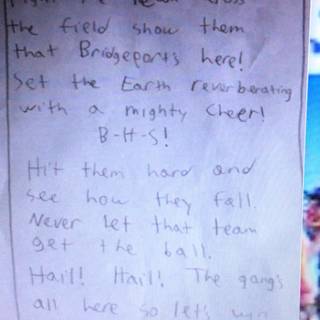 the field show them
that Bridgeports here!
Set the Earth reverberating
with a mighty cheer!
B-H-S!
Hit them hard and
see how they fall.
Never let that team
get the ball.
Hail! Hail! The gang's
all here so let's win